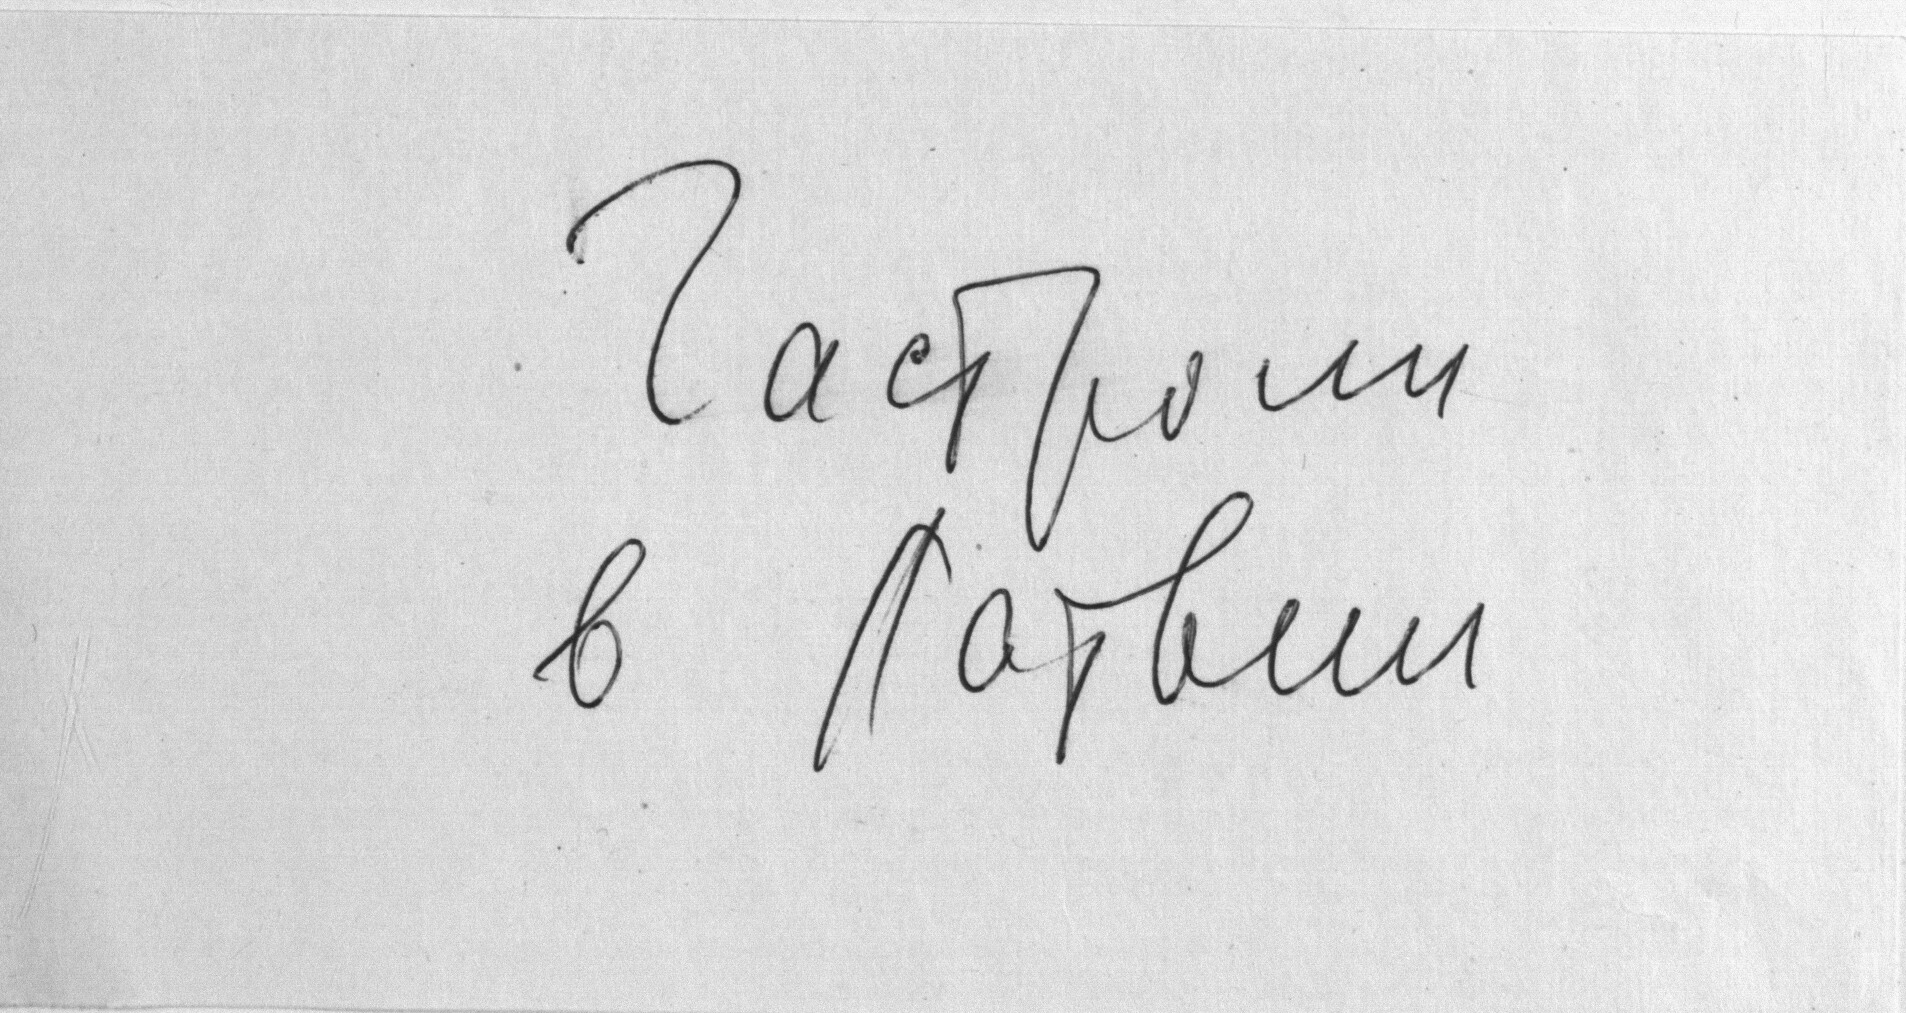 Гастроли
в Латвии